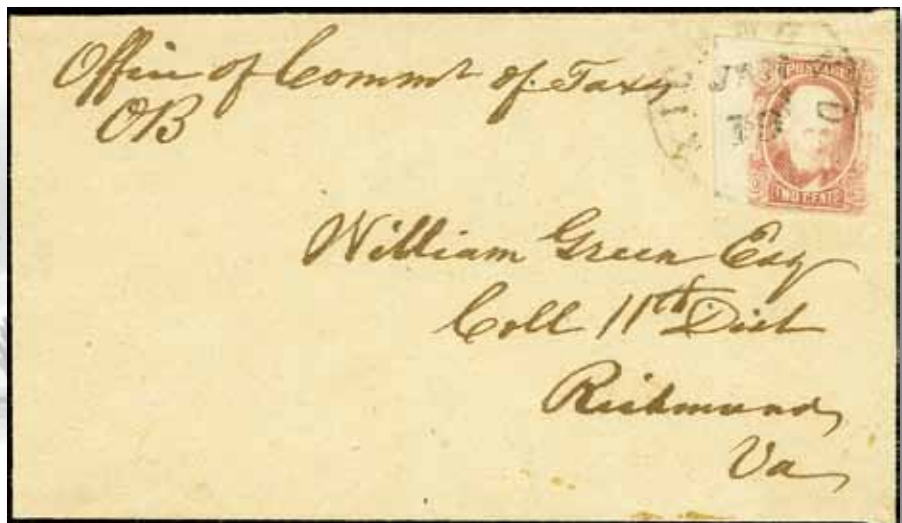 Office of Commr of Taxes
OB
POSTAGE
TWO CENTS
William Green Esq
Coll 11th Dist
Richmond
Va